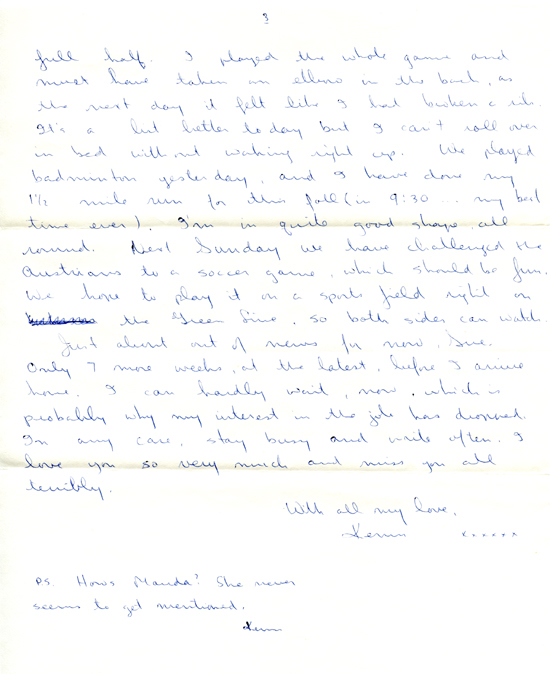 3
full half. I played the whole game and
must have taken an elbow in the back, as
the next day it felt like I had broken a rib.
It's a bit better today but I can't roll over
in bed without waking right up. We played
badminton yesterday, and I have done my
1½ mile run for this fall (in 9:30 ... my best
time ever). I'm in quite good shape, all
round. Next Sunday we have challenged the
Austrians to a soccer game, which should be fun.
We hope to play it on a sports field right on
the Green Line, so both sides can watch.
Just about out of news for now, Sue.
Only 7 more weeks, at the latest, before I arrive
home. I can hardly wait, now, which is
probably why my interest in the job has dropped.
In any case, stay busy and write often. I
love you so very much and miss you all
terribly.
With all my love,
xxxxxx
P.S. Hows Manda? She never
seems to get mentioned.